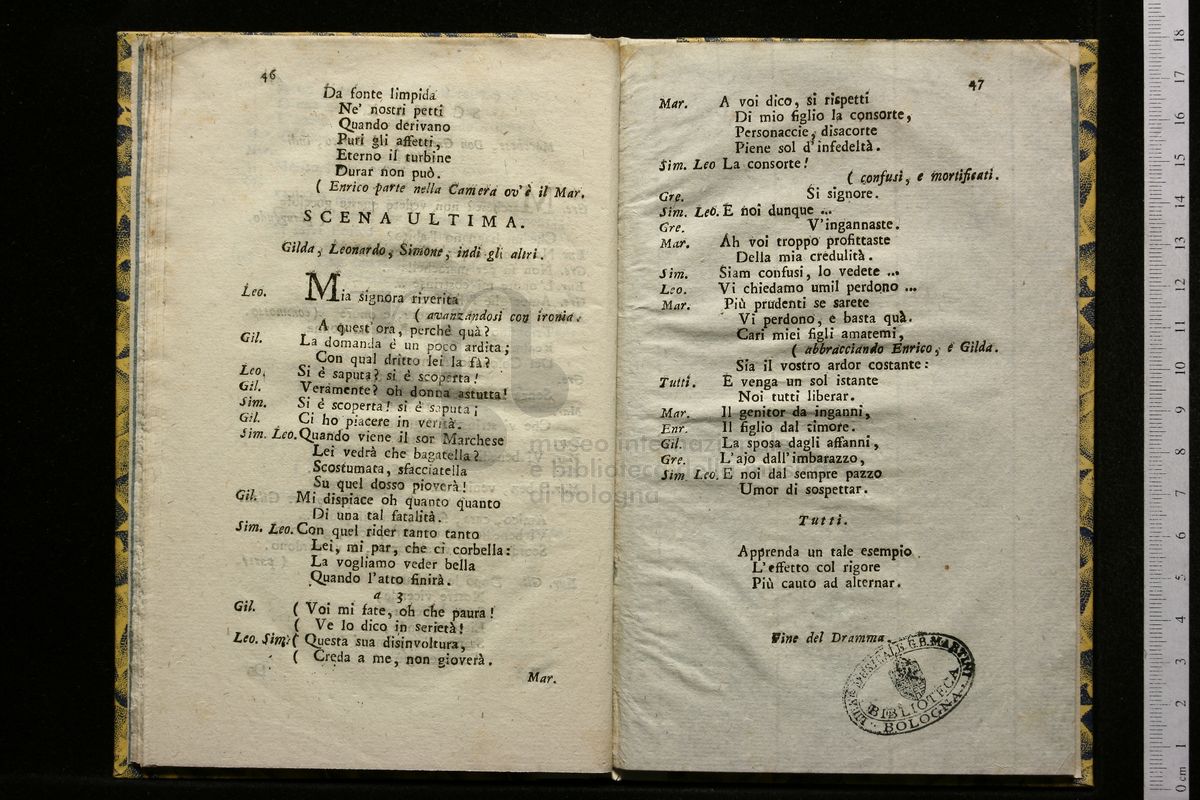 46
Da fonte limpida
Ne' nostri petti
Quando derivano
Puri gli affetti,
Eterno il turbine
Durar non può.
( Enrico parte nella Camera ov'è il Mar.
SCENA ULTIMA.
Gilda, Leonardo, Simone, indi gli altri.
Leo. Mia signora riverita
( avanzandosi con ironia.
A quest' ora, perchè quà?
Gil. La domanda è un poco ardita;
Con qual dritto lei la fà?
Leo, Si è saputa? si è scoperta!
Gil. Veramente? oh donna astutta!
Sim. Si è scoperta! si è saputa;
Gil. Ci ho piacere in verità.
Sim. Leo. Quando viene il sor Marchese
Lei vedrà che bagatella?
Scostumata, sfacciatella
Su quel dosso pioverà!
Gil. Mi dispiace oh quanto quanto
Di una tal fatalità.
Sim. Leo. Con quel rider tanto tanto
Lei, mi par, che ci corbella:
La vogliamo veder bella
Quando l'atto finirà.
a 3
Gil. ( Voi mi fate, oh che paura!
( Ve lo dico in serietà!
Leo. Sim. ( Questa sua disinvoltura,
( Creda a me, non gioverà.
Mar.
47
Mar. A voi dico, si rispetti
Di mio figlio la consorte,
Personaccie, disacorte
Piene sol d'infedeltà.
Sim. Leo La consorte!
( confusi, e mortificati.
Gre. Si signore.
Sim. Leo. E noi dunque ...
Gre. V'ingannaste.
Mar. Ah voi troppo profittaste
Della mia credulità.
Sim. Siam confusi, lo vedete ...
Leo. Vi chiedamo umil perdono ...
Mar. Più prudenti se sarete
Vi perdono, e basta quà.
Cari miei figli amatemi,
( abbracciando Enrico, e Gilda.
Sia il vostro ardor costante:
Tutti. E venga un sol istante
Noi tutti liberar.
Mar. Il genitor da inganni,
Enr. Il figlio dal timore.
Gil. La sposa dagli affanni,
Gre. L'ajo dall'imbarazzo,
Sim Leo. E noi dal sempre pazzo
Umor di sospettar.
Tutti.
Apprenda un tale esempio
L'effetto col rigore
Più cauto ad alternar.
Fine del Dramma.
LICEO MUSICALE G. B. MARTINI
BIBLIOTECA
BOLOGNA
museo internazionale
e biblioteca della musica
di bologna
0 cm 1 2 3 4 5 6 7 8 9 10 11 12 13 14 15 16 17 18